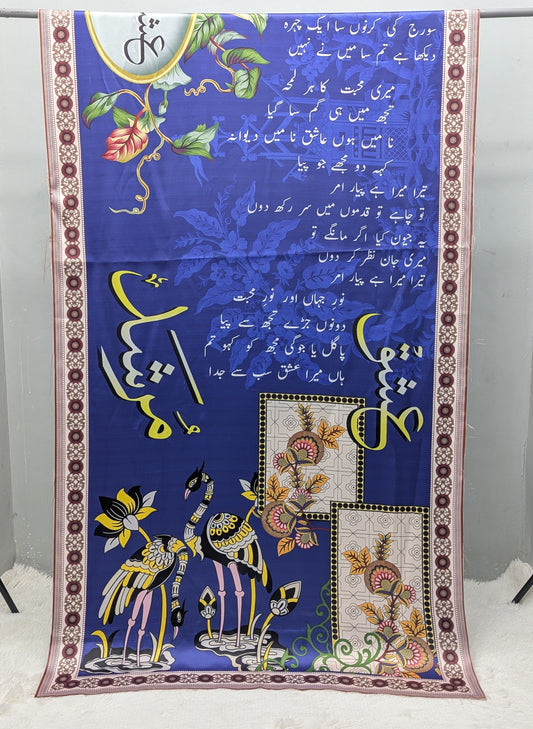 عشق
سورج کی کرنوں سا ایک چہرہ
دیکھا ہے تم سا میں نے نہیں
میری محبت کا ہر لمحہ
تجھ میں ہی گم سا گیا
نا میں ہوں عاشق نا میں دیوانہ
کہہ دو مجھے جو پیا
تیرا میرا ہے پیار امر
تو چاہے تو قدموں میں سر رکھ دوں
یہ جیون کیا اگر مانگے تو
میری جان نظر کر دوں
تیرا میرا ہے پیار امر
نور جہاں اور نور محبت
دونوں جڑے تجھ سے پیا
پاگل یا جوگی مجھ کو کہو تم
ہاں میرا عشق سب سے جدا
مُرشد
عشق